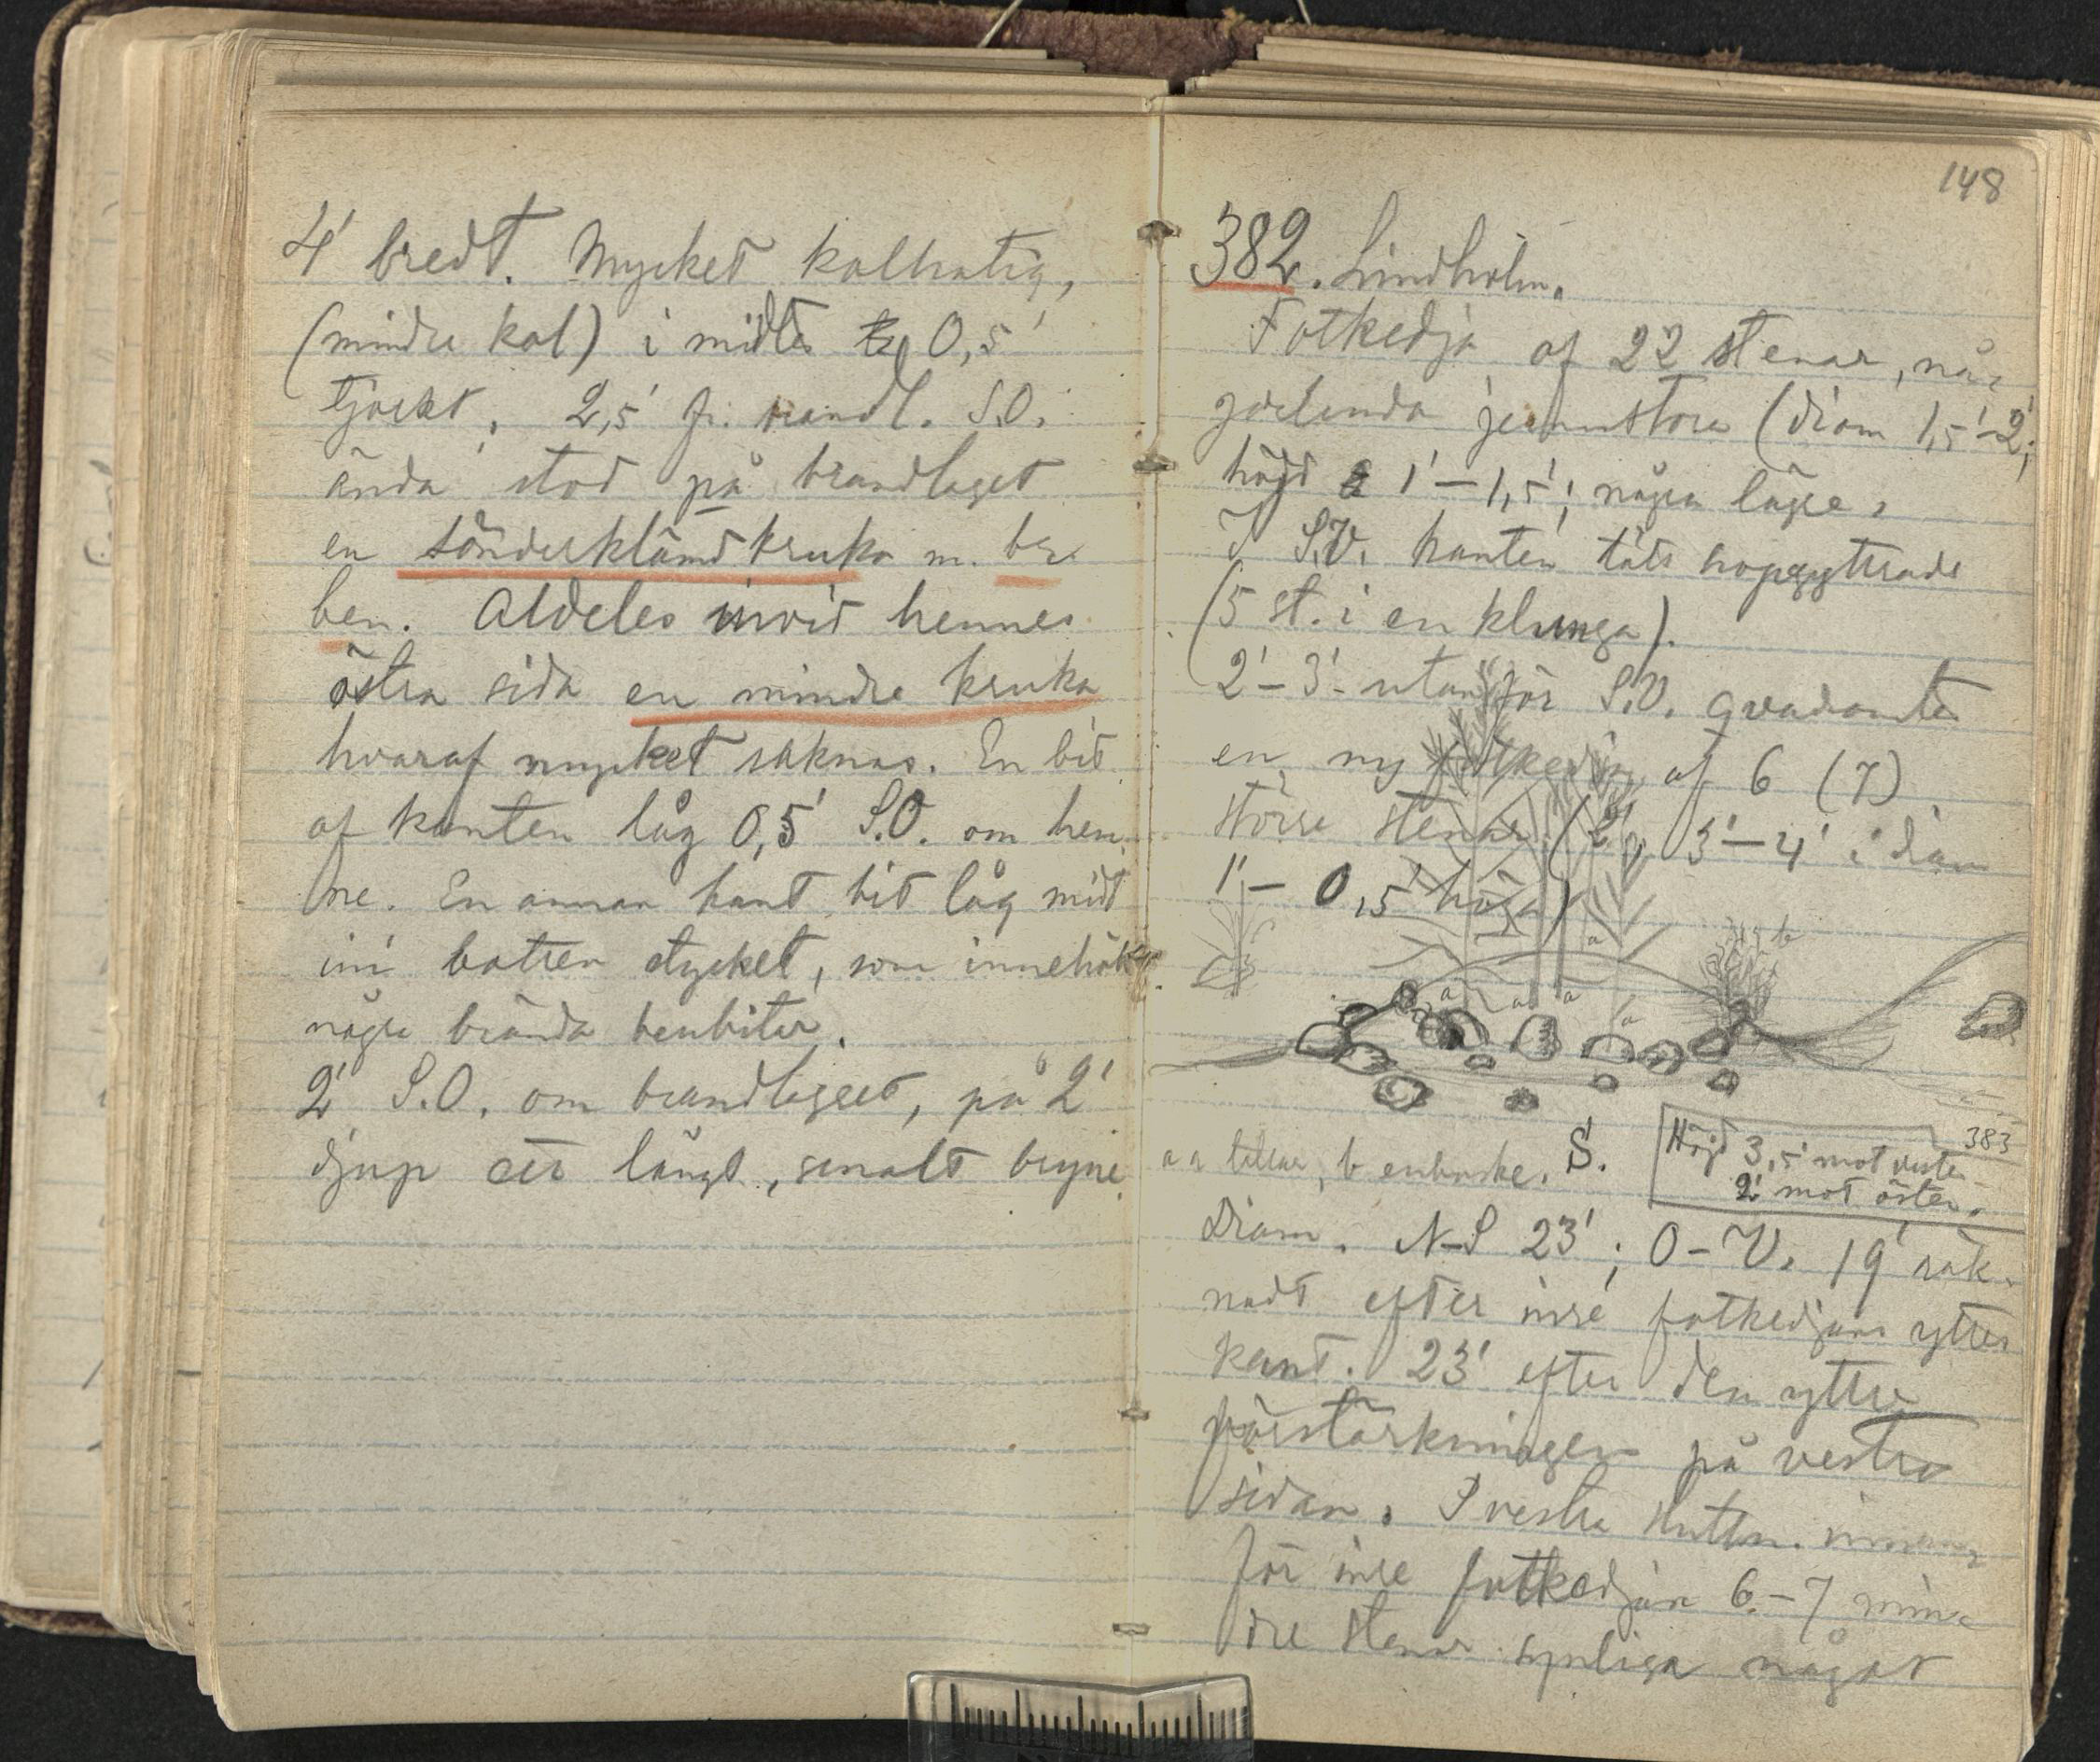 4' bredt. Mycket kolhatig,
(mindre kol) i midten 0,5'
tjockt. 2,5' fr. brandl. S.O.
ända stod på brandlaget
en sönderklämd kruka m. br.
ben. Aldeles invid hennes
östra sida en mindre kruka
hvaraf mycket saknas. En bit
af kanten låg 0,5' S.O. om hen
ne. En annan kant bit låg midt
ini botten stycket, som innehöll
några brända benbitar.
2' S.O. om brandlagret, på 2'
djup ett långt, smalt bryne
148
382. Lindholm.
Fotkedja af 22 stenar, nå-
gorlunda jemnstora (diam 1,5'-2';
höjd 1'-1,5'; några lägre.
I S.V. kanten täts hopgyttrade
(5 st. i en klunga).
2'-3' utanför S.V. qvadranten
en ny fotkedja af 6 (7)
större stenar (2', 3'-4' i diam
1'-0,5' höga)
a a a a a b
a a tallar, b enbuske. S.
383
Höjd 3,5' mot vester
2' mot öster.
Diam. N-S 23'; O-V. 19' räk-
nadt efter inre fotkedjans yttre
kant. 23' efter den yttre
förstärkningen på vestra
sidan. I vestra sluttn. innan
för inre fotkedjan 6-7 min-
dre stenar synliga något